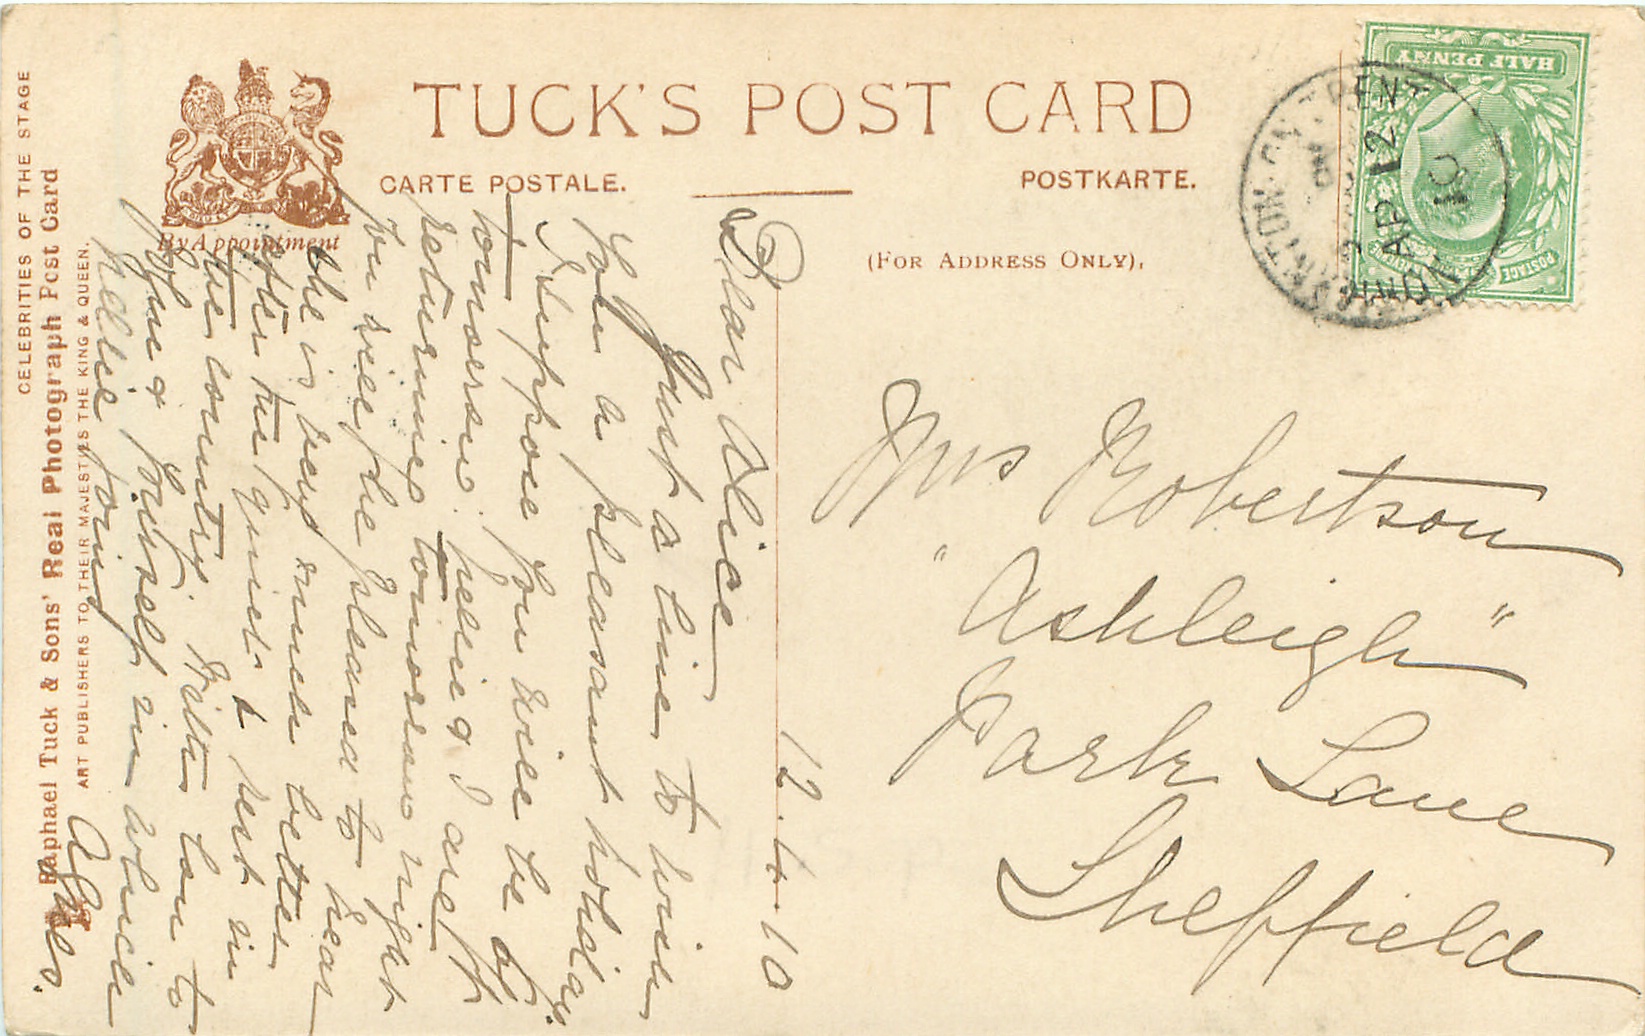 TUCK'S POST CARD
CARTE POSTALE.
POSTKARTE.
(FOR ADDRESS ONLY).
By Appointment
CELEBRITIES OF THE STAGE
Raphael Tuck & Sons' Real Photograph Post Card
ART PUBLISHERS TO THEIR MAJESTIES THE KING & QUEEN.
HALF PENNY
POSTAGE
AP 12
10
12.4.10
Dear Alice
Just a line to wish
you a pleasant holiday.
I suppose you will be off
tomorrow. Nellie & I are
returning tomorrow night
you will be pleased to hear
she is very much better
after the quiet & rest in
the country. With love to
John & yourself in which
Nellie joins
Agnes.
Mrs Robertson
"Ashleigh"
Park Lane
Sheffield